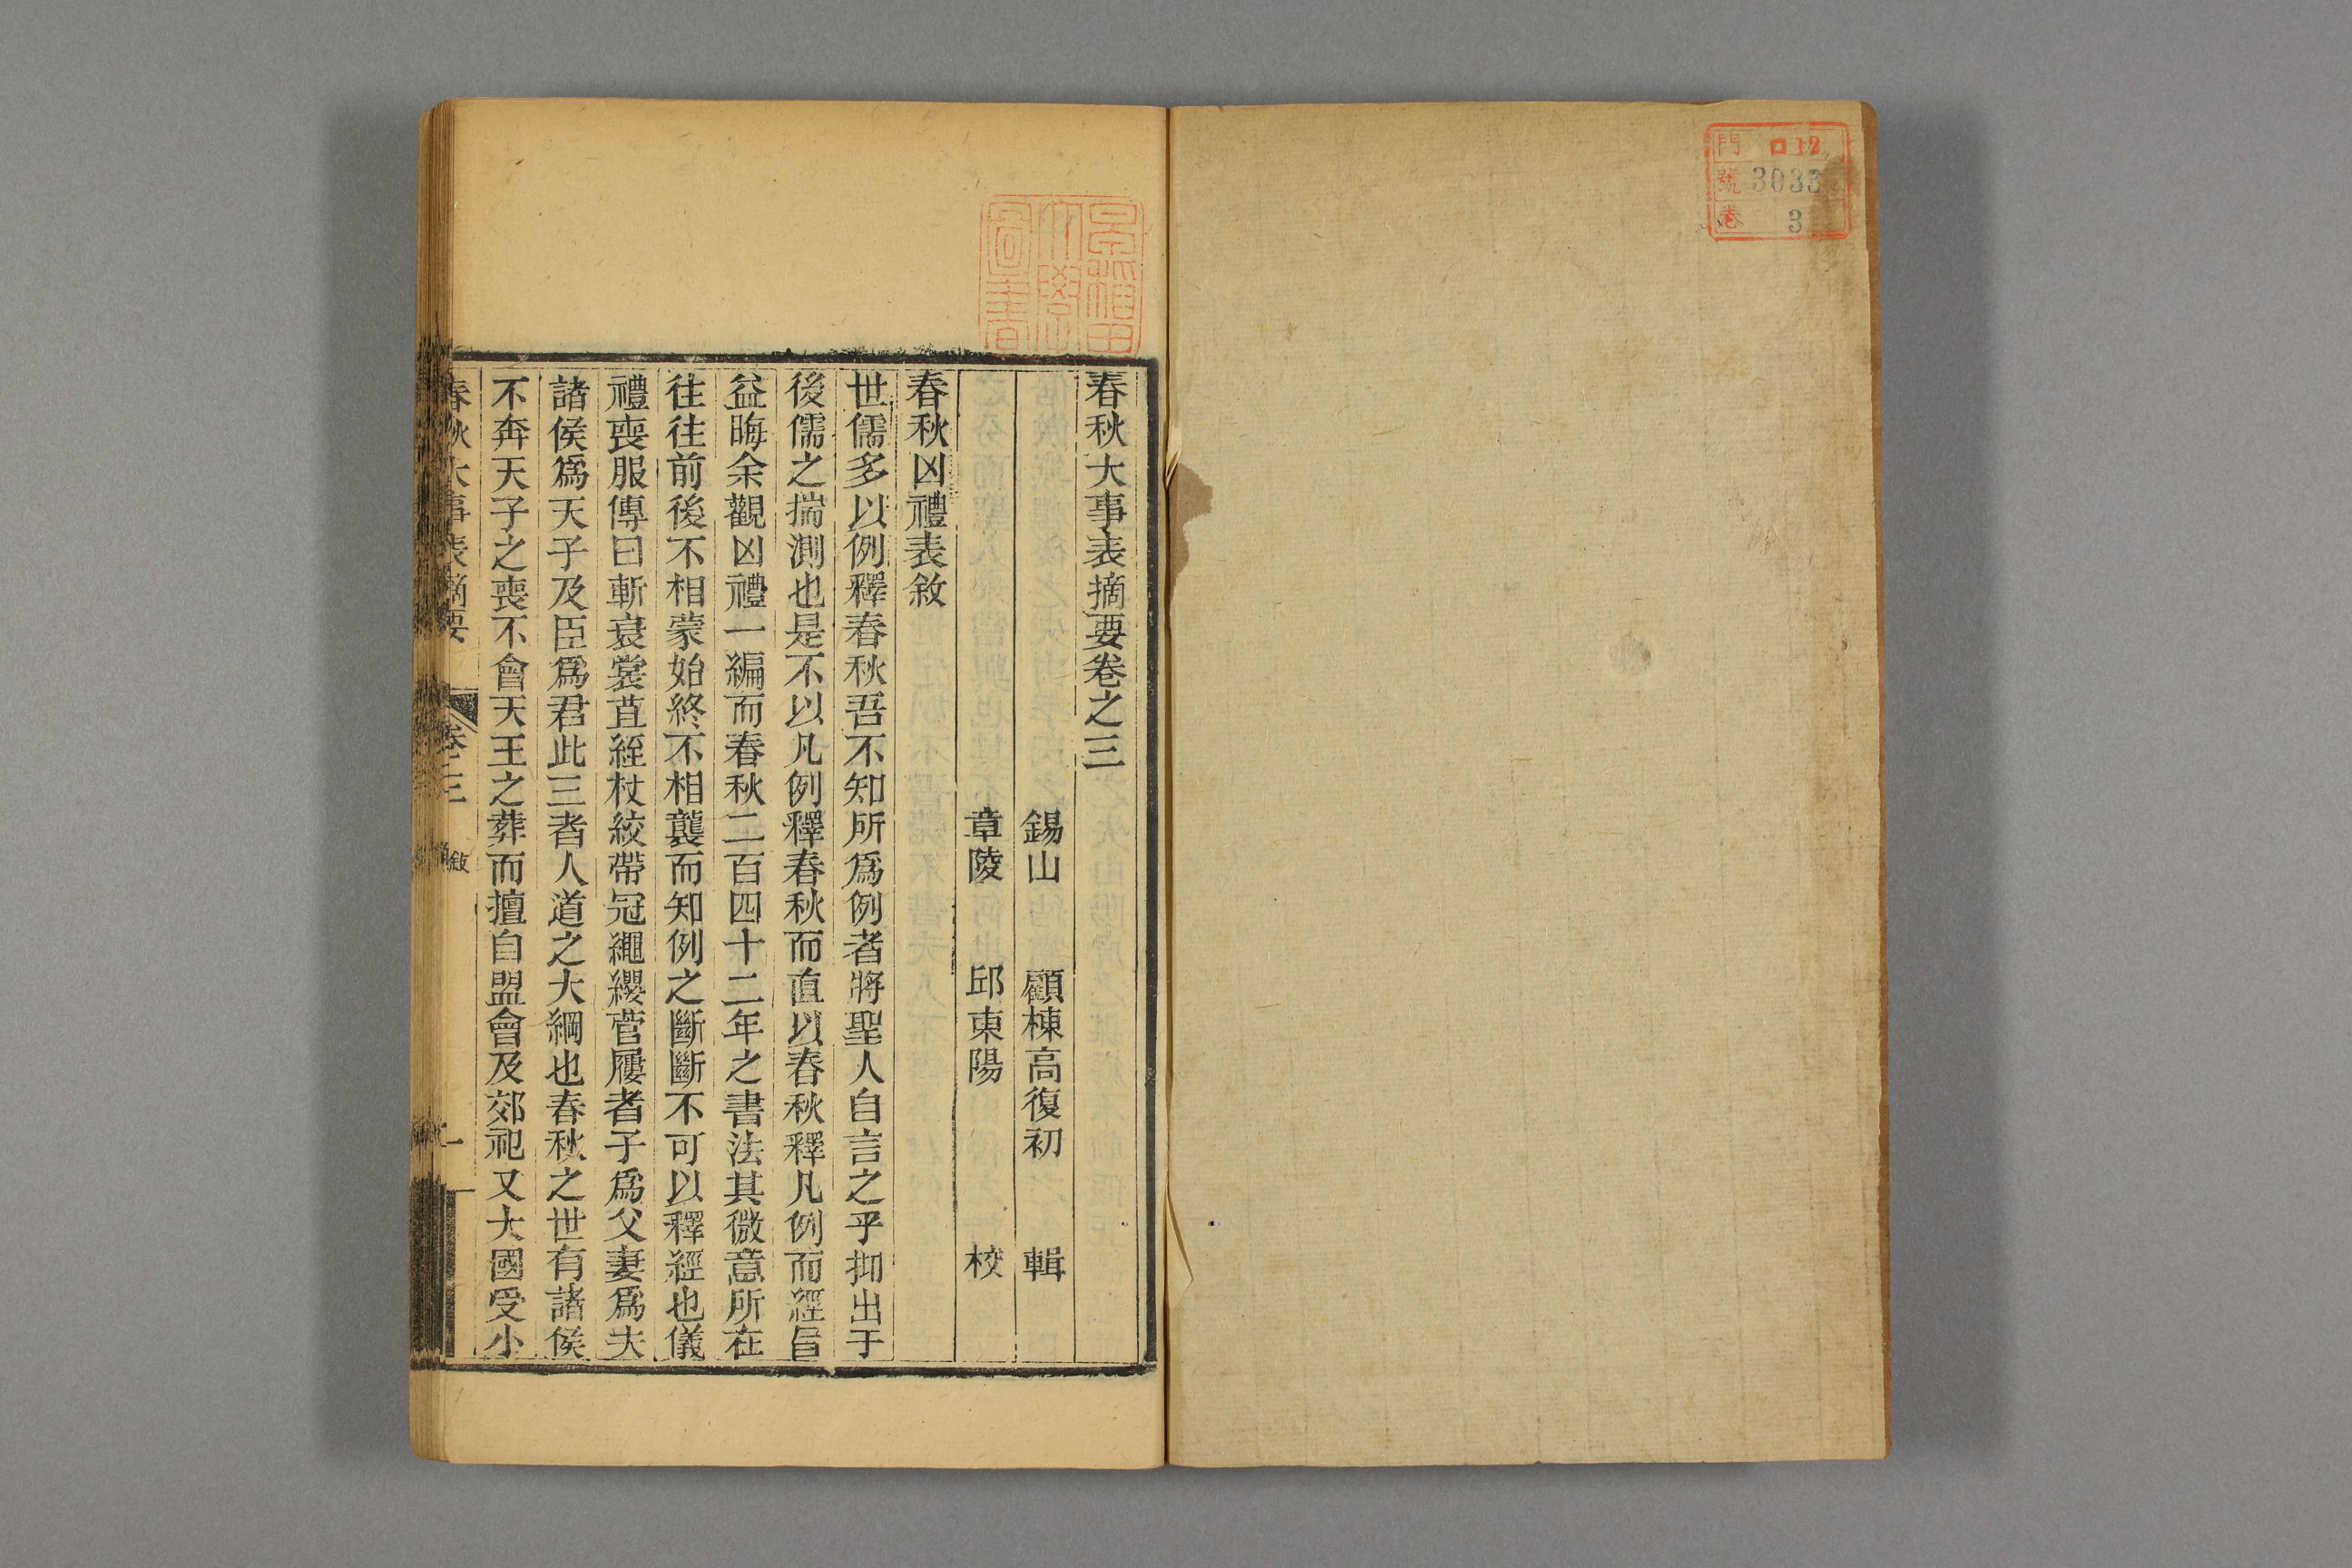 門 ロ12
號 3033
卷 3
早稲田
大學
圖書
春秋大事表摘要卷之三
錫山 顧棟高復初 輯
章陵 邱東陽 校
春秋凶禮表敘
世儒多以例釋春秋吾不知所爲例者將聖人自言之乎抑出于
後儒之揣測也是不以凡例釋春秋而直以春秋釋凡例而經旨
益晦余觀凶禮一編而春秋二百四十二年之書法其微意所在
往往前後不相蒙始終不相襲而知例之斷斷不可以釋經也儀
禮喪服傳曰斬衰裳苴絰杖絞帶冠繩纓菅屨者子爲父妻爲夫
諸侯爲天子及臣爲君此三者人道之大綱也春秋之世有諸侯
不奔天子之喪不會天王之葬而擅自盟會及郊祀又大國受小
春秋大事表摘要 卷之三 敘 一